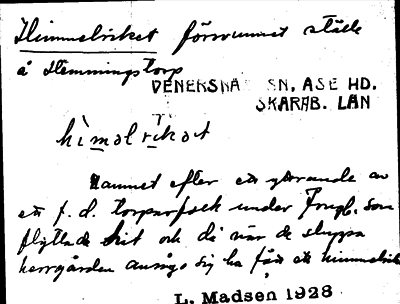 Himmelriket försvunnet ställe
å Hemmingstorp
VENERSNÄS SN, ÅSE HD.
SKARAB. LÄN
himolrikat
Namnet efter ett yttrande av
ett f. d. torparfolk under Frugb. som
flyttade hit och di när de sluppo
herrgården ansågo sig ha fått ett himmelrike
L. Madsen 1928